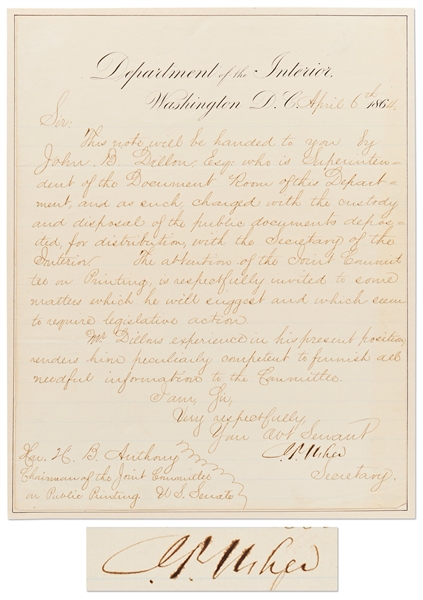 Department of the Interior.
Washington D. C. April 6th 1864.
Sir:
This note will be handed to you by
John D. Dillon, Esq: who is Superinten-
dent of the Document Room of this Depart-
ment, and as such charged with the custody
and disposal of the public documents depos-
ited, for distribution, with the Secretary of the
Interior. The attention of the Joint Commit
tee on Printing, is respectfully invited to some
matters which he will suggest and which seem
to require legislative action.
Mr Dillons experience in his present position,
renders him peculiarly competent to furnish all
needful information to the Committee.
I am, Sir,
Very respectfully
Your Obt Servant
J. P. Usher
Secretary.
Hon. H. B. Anthony
Chairman of the Joint Committee
on Public Printing U. S. Senate
J. P. Usher